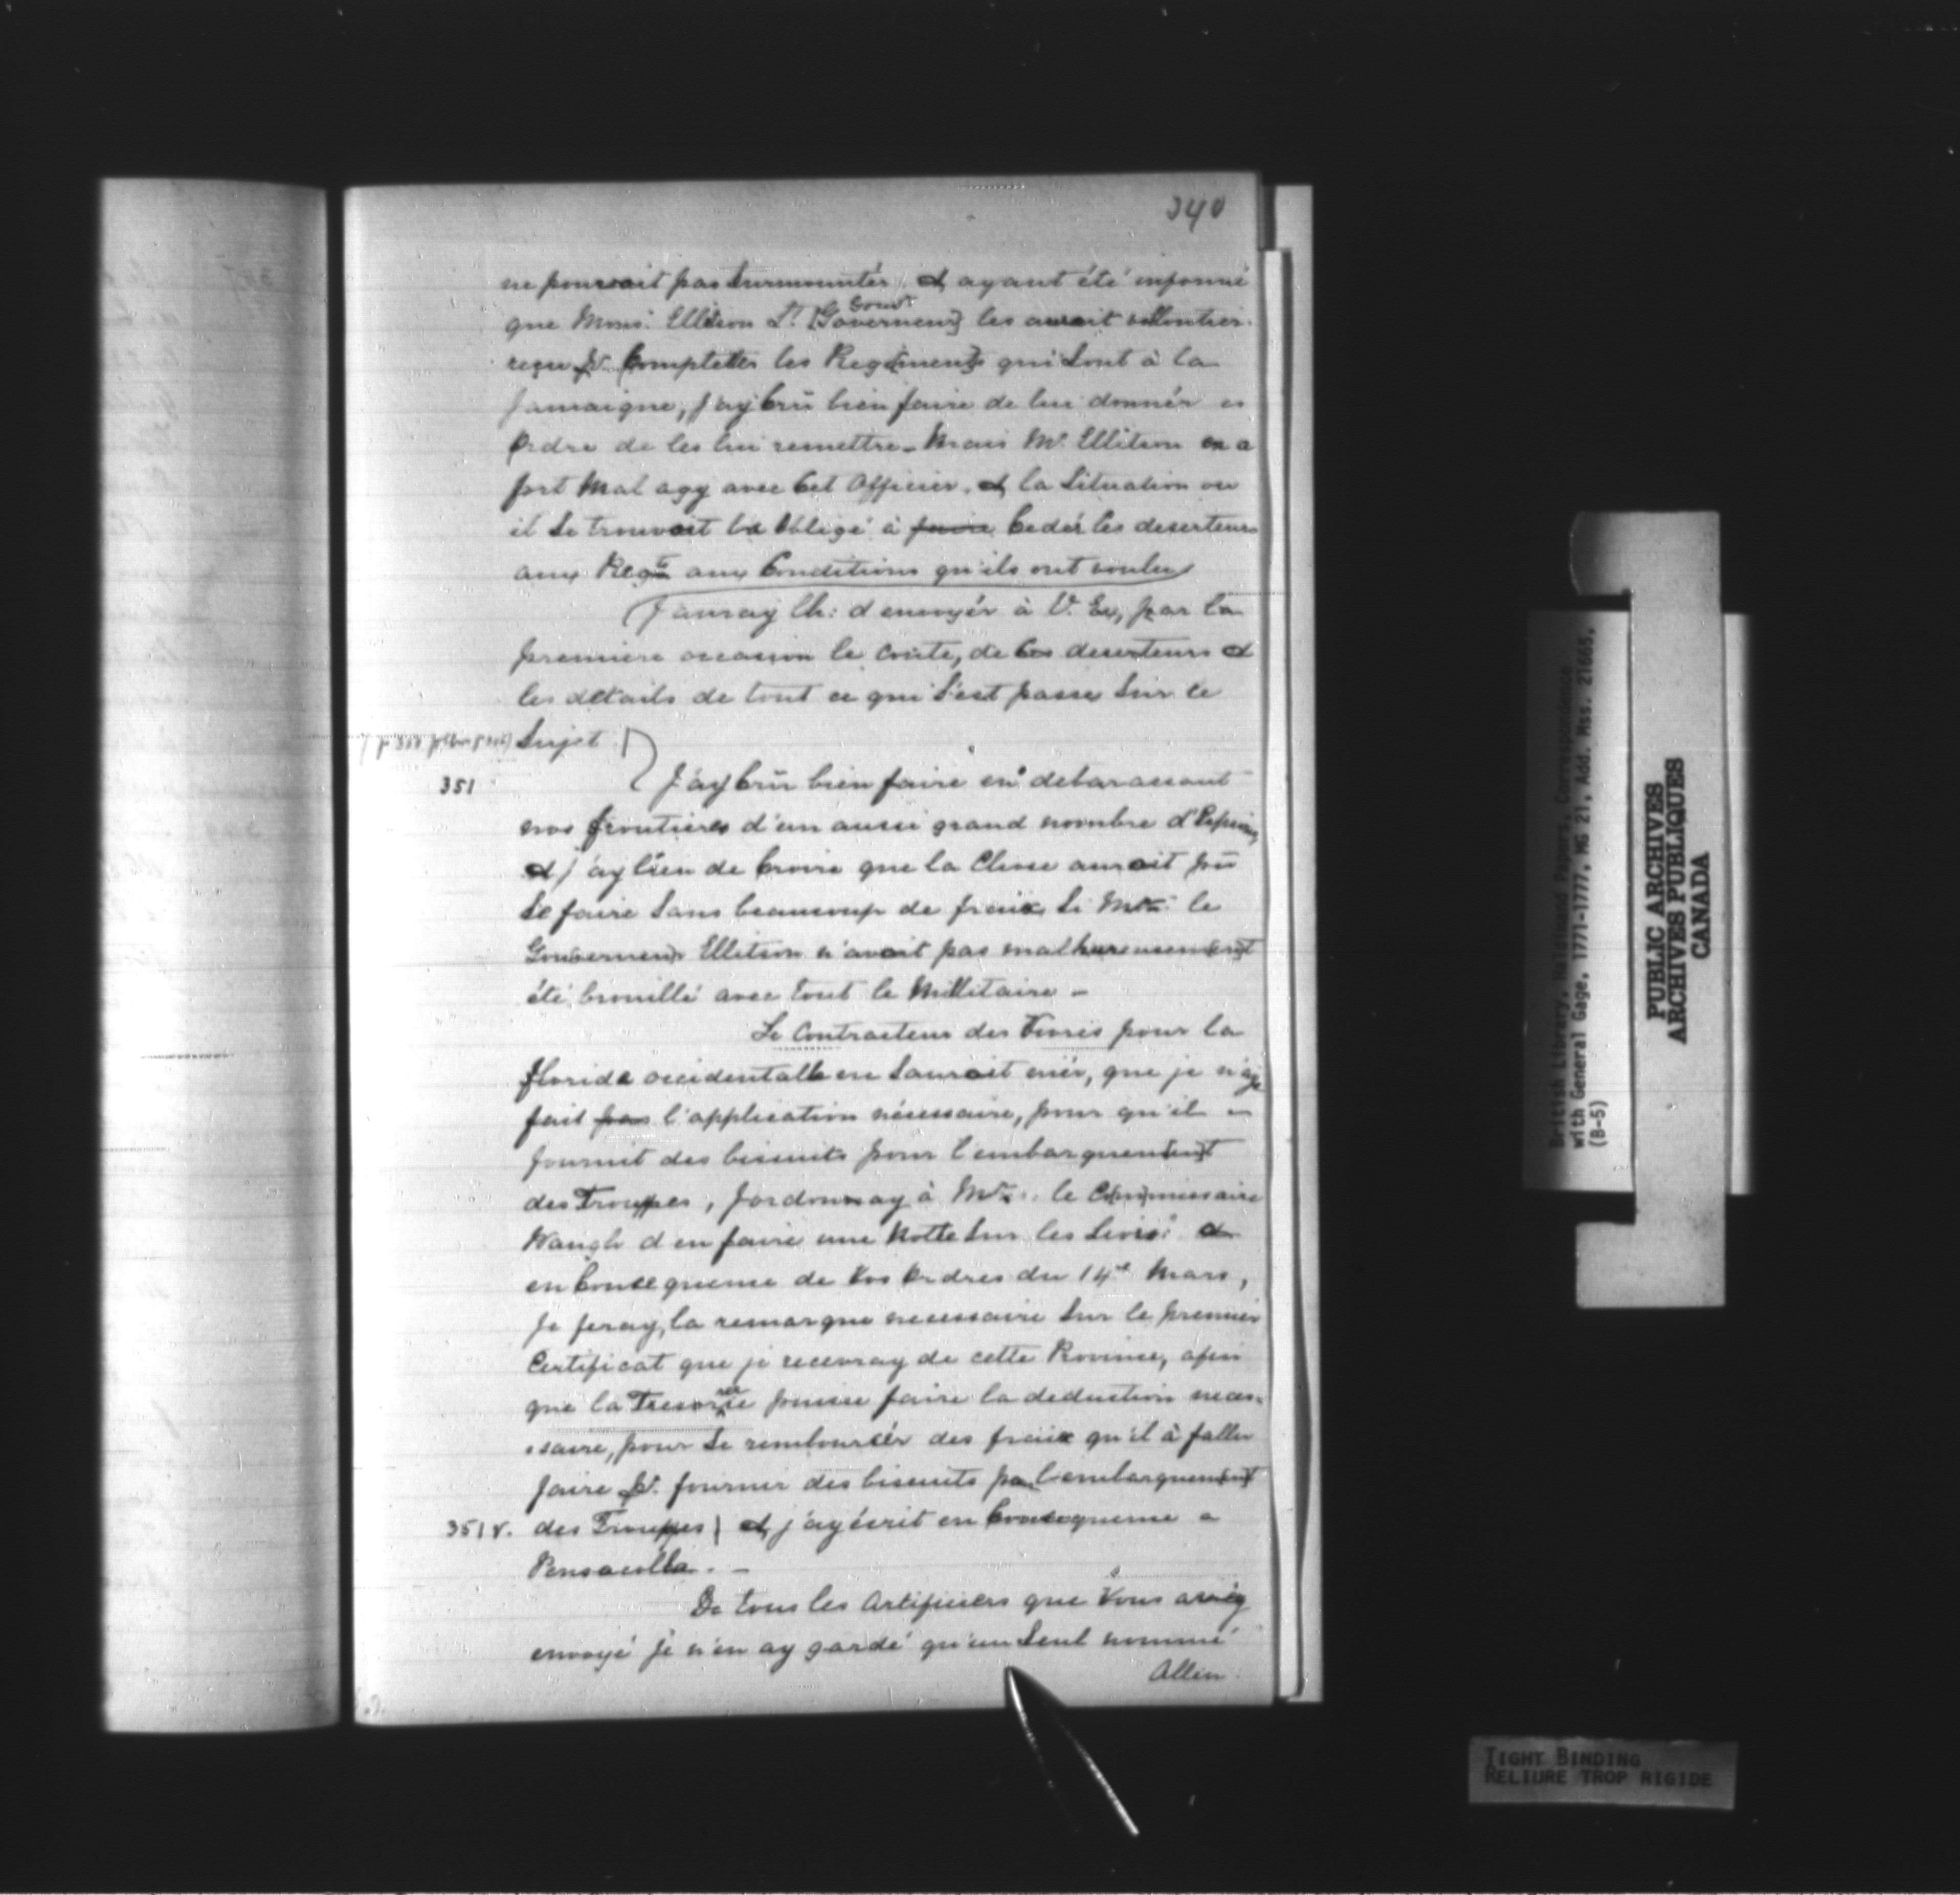 340
ne pouvoit pas Surmountér, & ayant été informé
que Mons: Ellison Lt. [Governeur] Gouvr les auroit vollontier
reçu pr. Completter les Reg[iment]s qui Sont à la
Jamaigne, J'ay Crü bien faire de lui donnér
Ordre de les lui remettre - Mais Mr. Ellitson en a
fort Mal agy avec Cet Officier, & la Situation ou
il Se trouvoit l'a Obligé à faire Cedér les deserteurs
aux Regts aux Conditions qu'ils ont voulu
J'auray lh: d'envoyér à V. Ex, par la
premiere occasion le Conte, de Ces deserteurs &
les détails de tout ce qui S'est passé Sur ce
Sujet
351
J'ay Crü bien faire en debarassant
nos frontieres d'un aussi grand nombre d'Espions,
& j'ay lieu de Croire que la Chose auroit pû
Se faire Sans beaucoup de fraix, Si Mr. le
Gouverneur Ellitson n'avoit pas malhureusem[en]t
été brouillé avec tout le Millitaire -
Le Contracteur des Vivres pour la
floride occidentalle ne Sauroit niér, que je n'aye
fait pas l'application nécessaire, pour qu'il
fournit des biscuits pour l'embarquem[en]t
des Trouppes, J'ordonnay à Mr. le Co[m]missaire
Waugh d'en faire une Notte Sur les Livrs: &
en Consequense de Vos Ordres du 14e Mars,
Je feray, la remarque necessaire Sur le premier
Certificat que je recevray de cette Province, afin
que la Tresorie puisse faire la deduction neces-
saire, pour Se remboursér des fraix qu'il à fallu
faire pr. fournir des biscuits pr l'embarquem[en]t
351 v. des Trouppes | & j'ay écrit en Consequense a
Pensacolla. -
De tous les Artificiers que Vous aviéz
envoyé je n'en ay gardé qu'un Seul nommé
Allin
British Library, Haldimand Papers, Correspondence
with General Gage, 1771-1777, MG 21, Add. Mss. 21665,
(B-5)
PUBLIC ARCHIVES
ARCHIVES PUBLIQUES
CANADA
TIGHT BINDING
RELIURE TROP RIGIDE